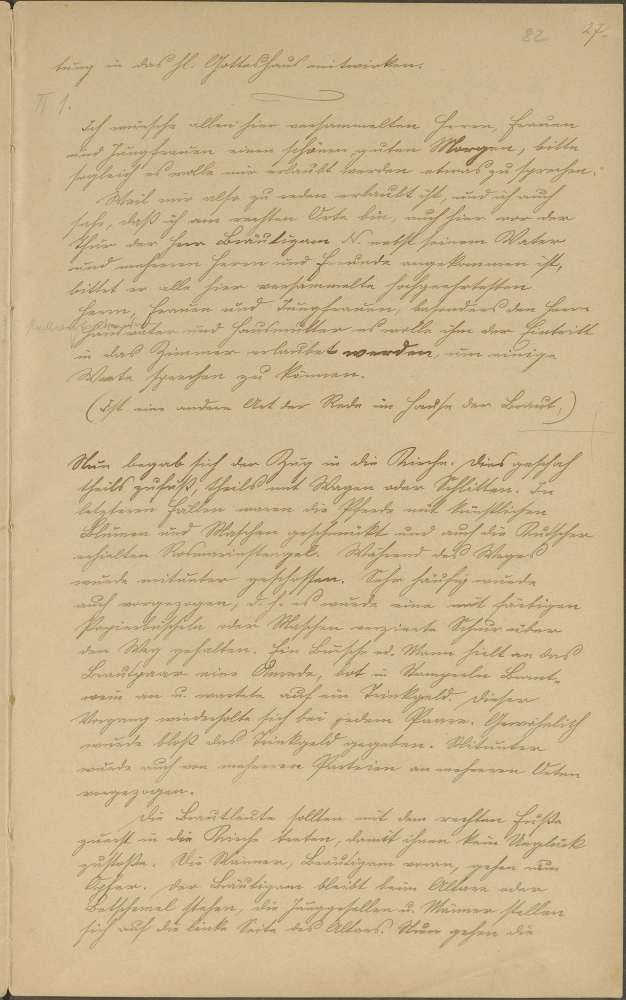 82 27.
tung in das hl. Gotteshaus mitwirken.
II 1.
Ich wünsche allen hier versammelten Herrn, Frauen
und Jungfrauen einen schönen guten Morgen, bitte
sogleich es wolle mir erlaubt werden etwas zu sprechen.
Weil mir also zu reden erlaubt ist, und ich auch
sehe, daß ich am rechten Orte bin, auch hier vor der
Thür der Herr Bräutigam N. nebst seinem Vater
und mehreren Herrn und Freunde angekommen ist,
bittet er alle hier versammelte hochgeehrtesten
Herrn, Frauen und Jungfrauen, besonders den Herrn
Hausvater und Hausmutter es wolle ihm der Eintritt
in das Zimmer erlaubet werden, um einige
Worte sprechen zu können.
(Ist eine andere Art der Rede im Hause der Braut.)
Nun begab sich der Zug in die Kirche. Dies geschah
theils zufuß, theils mit Wagen oder Schlitten. In
letzteren Fällen waren die Pferde mit künstlichen
Blumen und Maschen geschmückt und auch die Kutscher
erhielten Rosmarinstengel. Während des Weges
wurde mitunter geschossen. Sehr häufig wurde
auch vorgezogen, d. h. es wurde eine mit färbigen
Papierbüscheln oder Maschen verzierte Schnur über
den Weg gehalten. Ein Bursche od. Mann hielt an das
Brautpaar eine Anrede, bot in Stamperln Brant-
wein an u. wartete auf ein Trinkgeld. Dieser
Vorgang wiederholte sich bei jedem Paare. Gewöhnlich
wurde bloß das Trinkgeld gegeben. Mitunter
wurde auch von mehreren Parteien an mehreren Orten
vorgezogen.
Die Brautleute sollten mit dem rechten Fuße
zuerst in die Kirche treten, damit ihnen kein Unglück
zustoße. Die Männer, Bräutigam voran, gehen nun
Opfer. Der Bräutigam bleibt beim Altare oder
Betschemel stehen, die Junggesellen u. Männer stellen
sich auf die linke Seite des Altars. Nun gehen die